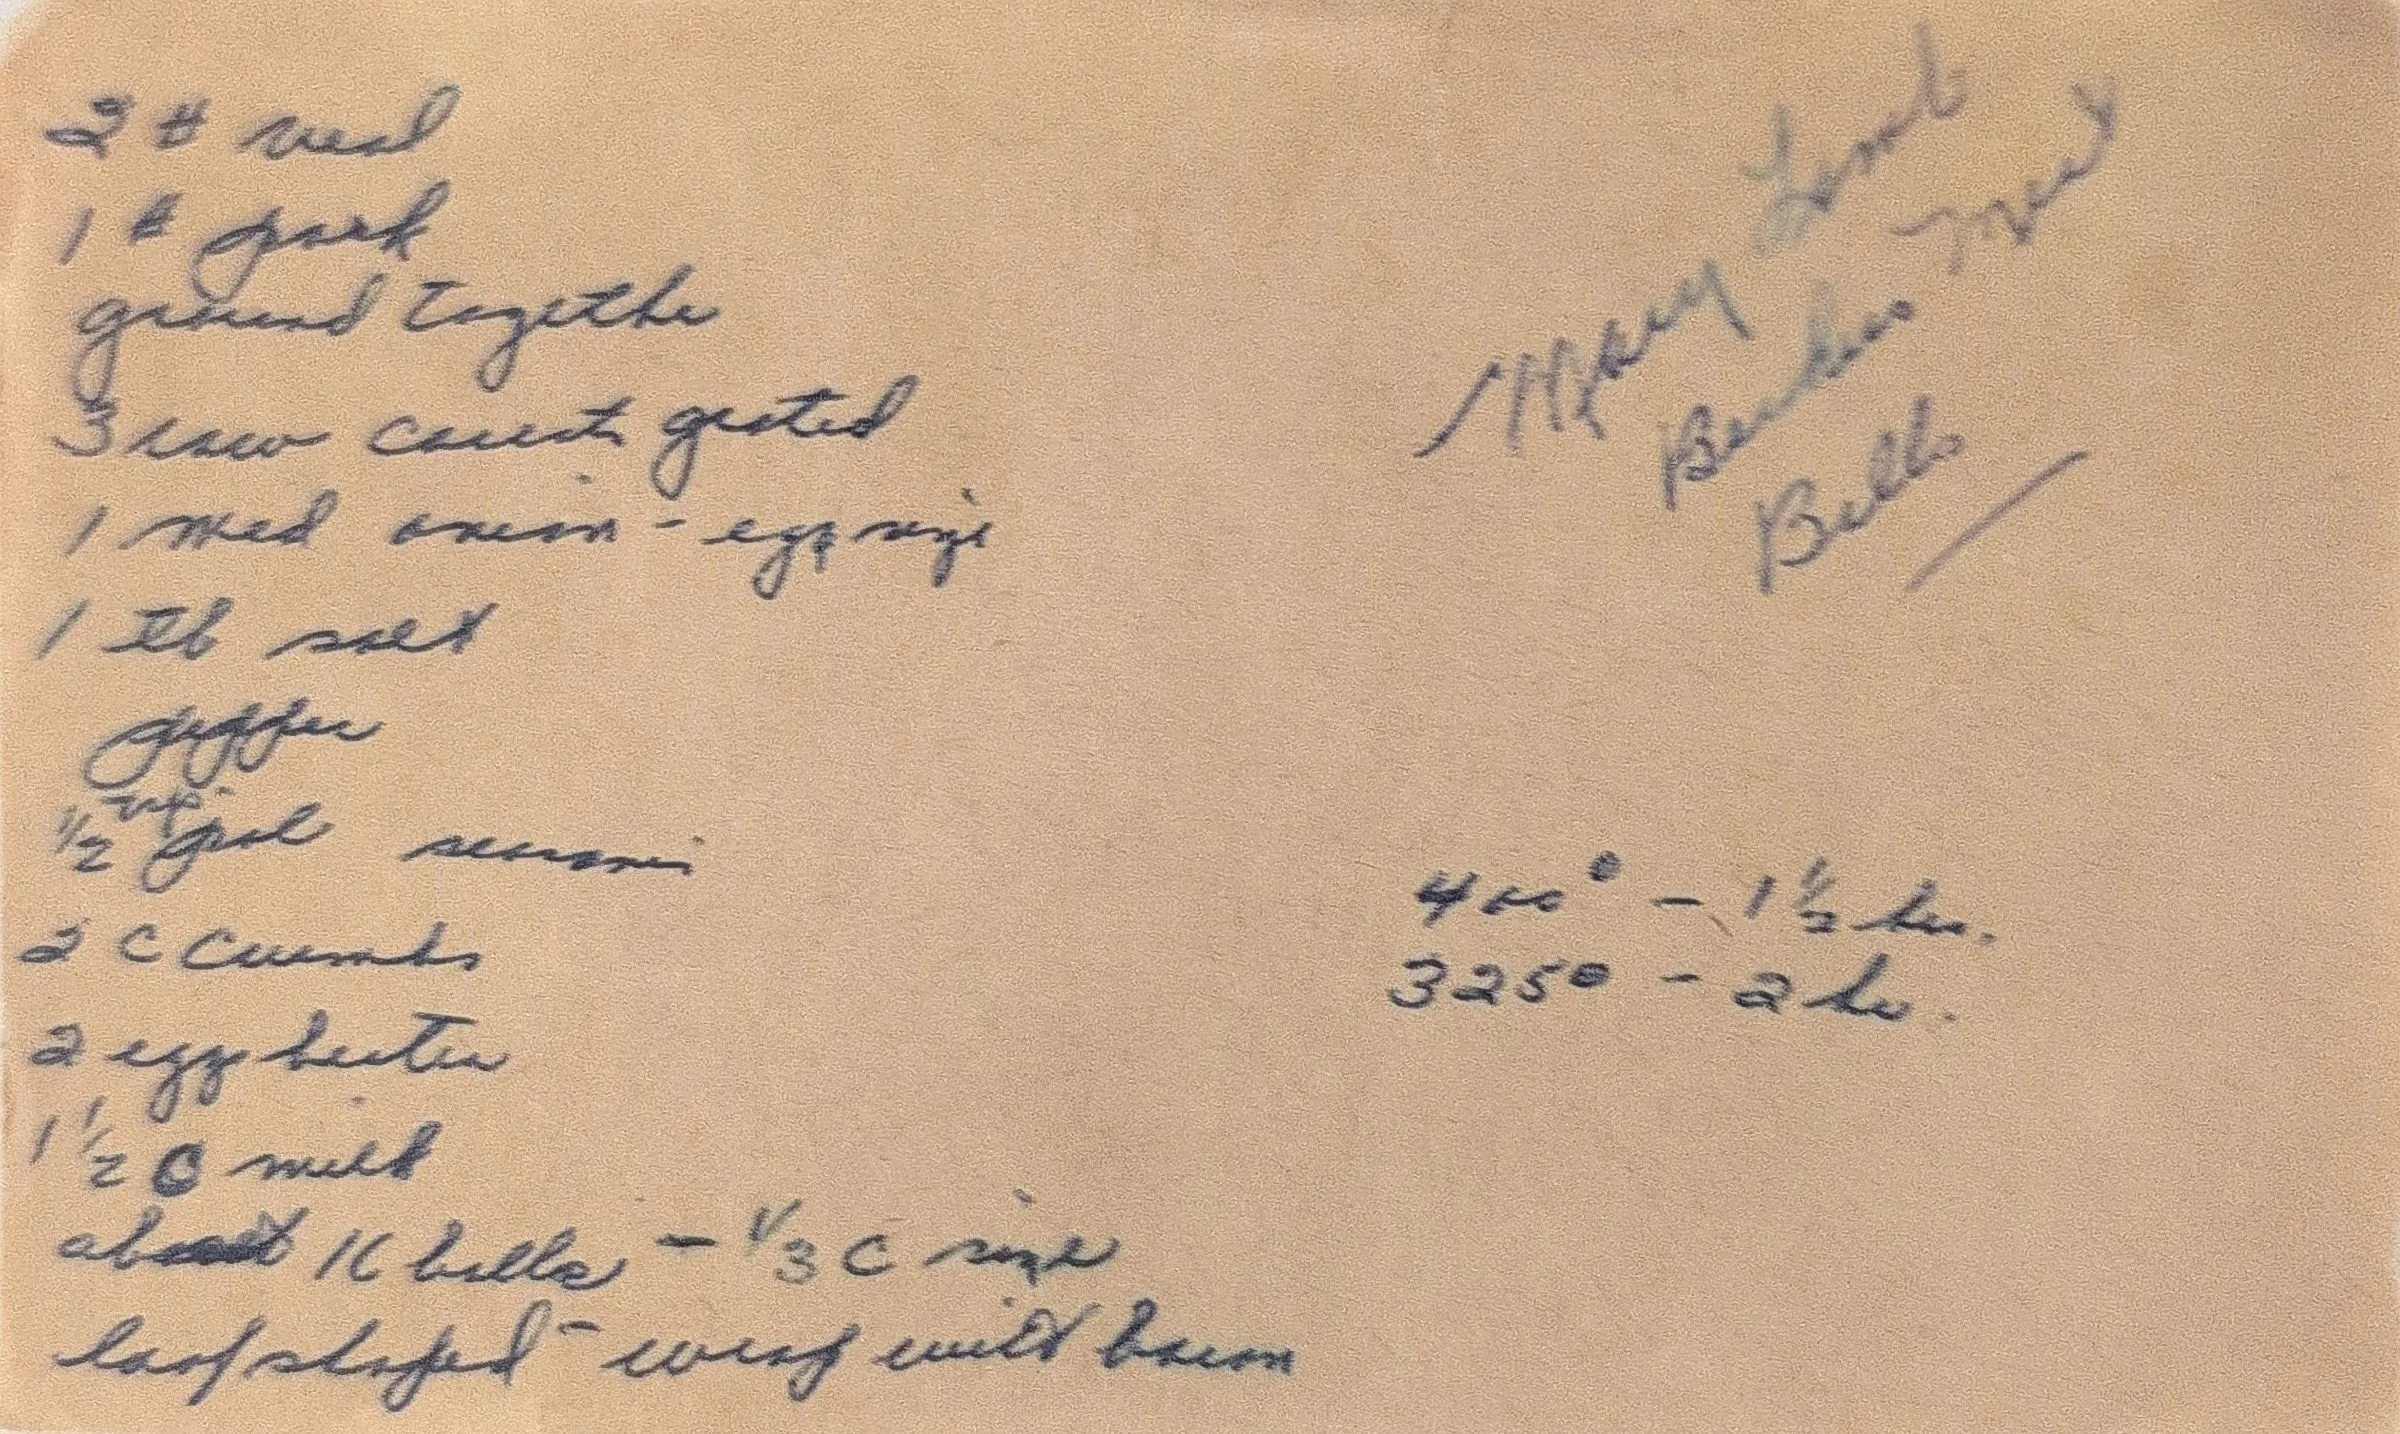 Mary
Meat
Balls
2 # veal
1 # pork
ground togethe
3 raw carrots grated
1 med onion - egg size
1 tb salt
pepper
1/2
2 C Crumbs
2 egg beaten
1 1/2 C milk
about 16 balls - 1/3 C size
loaf shaped - wrap with bacon
400° - 1 1/2 hr.
325° - 2 hr.